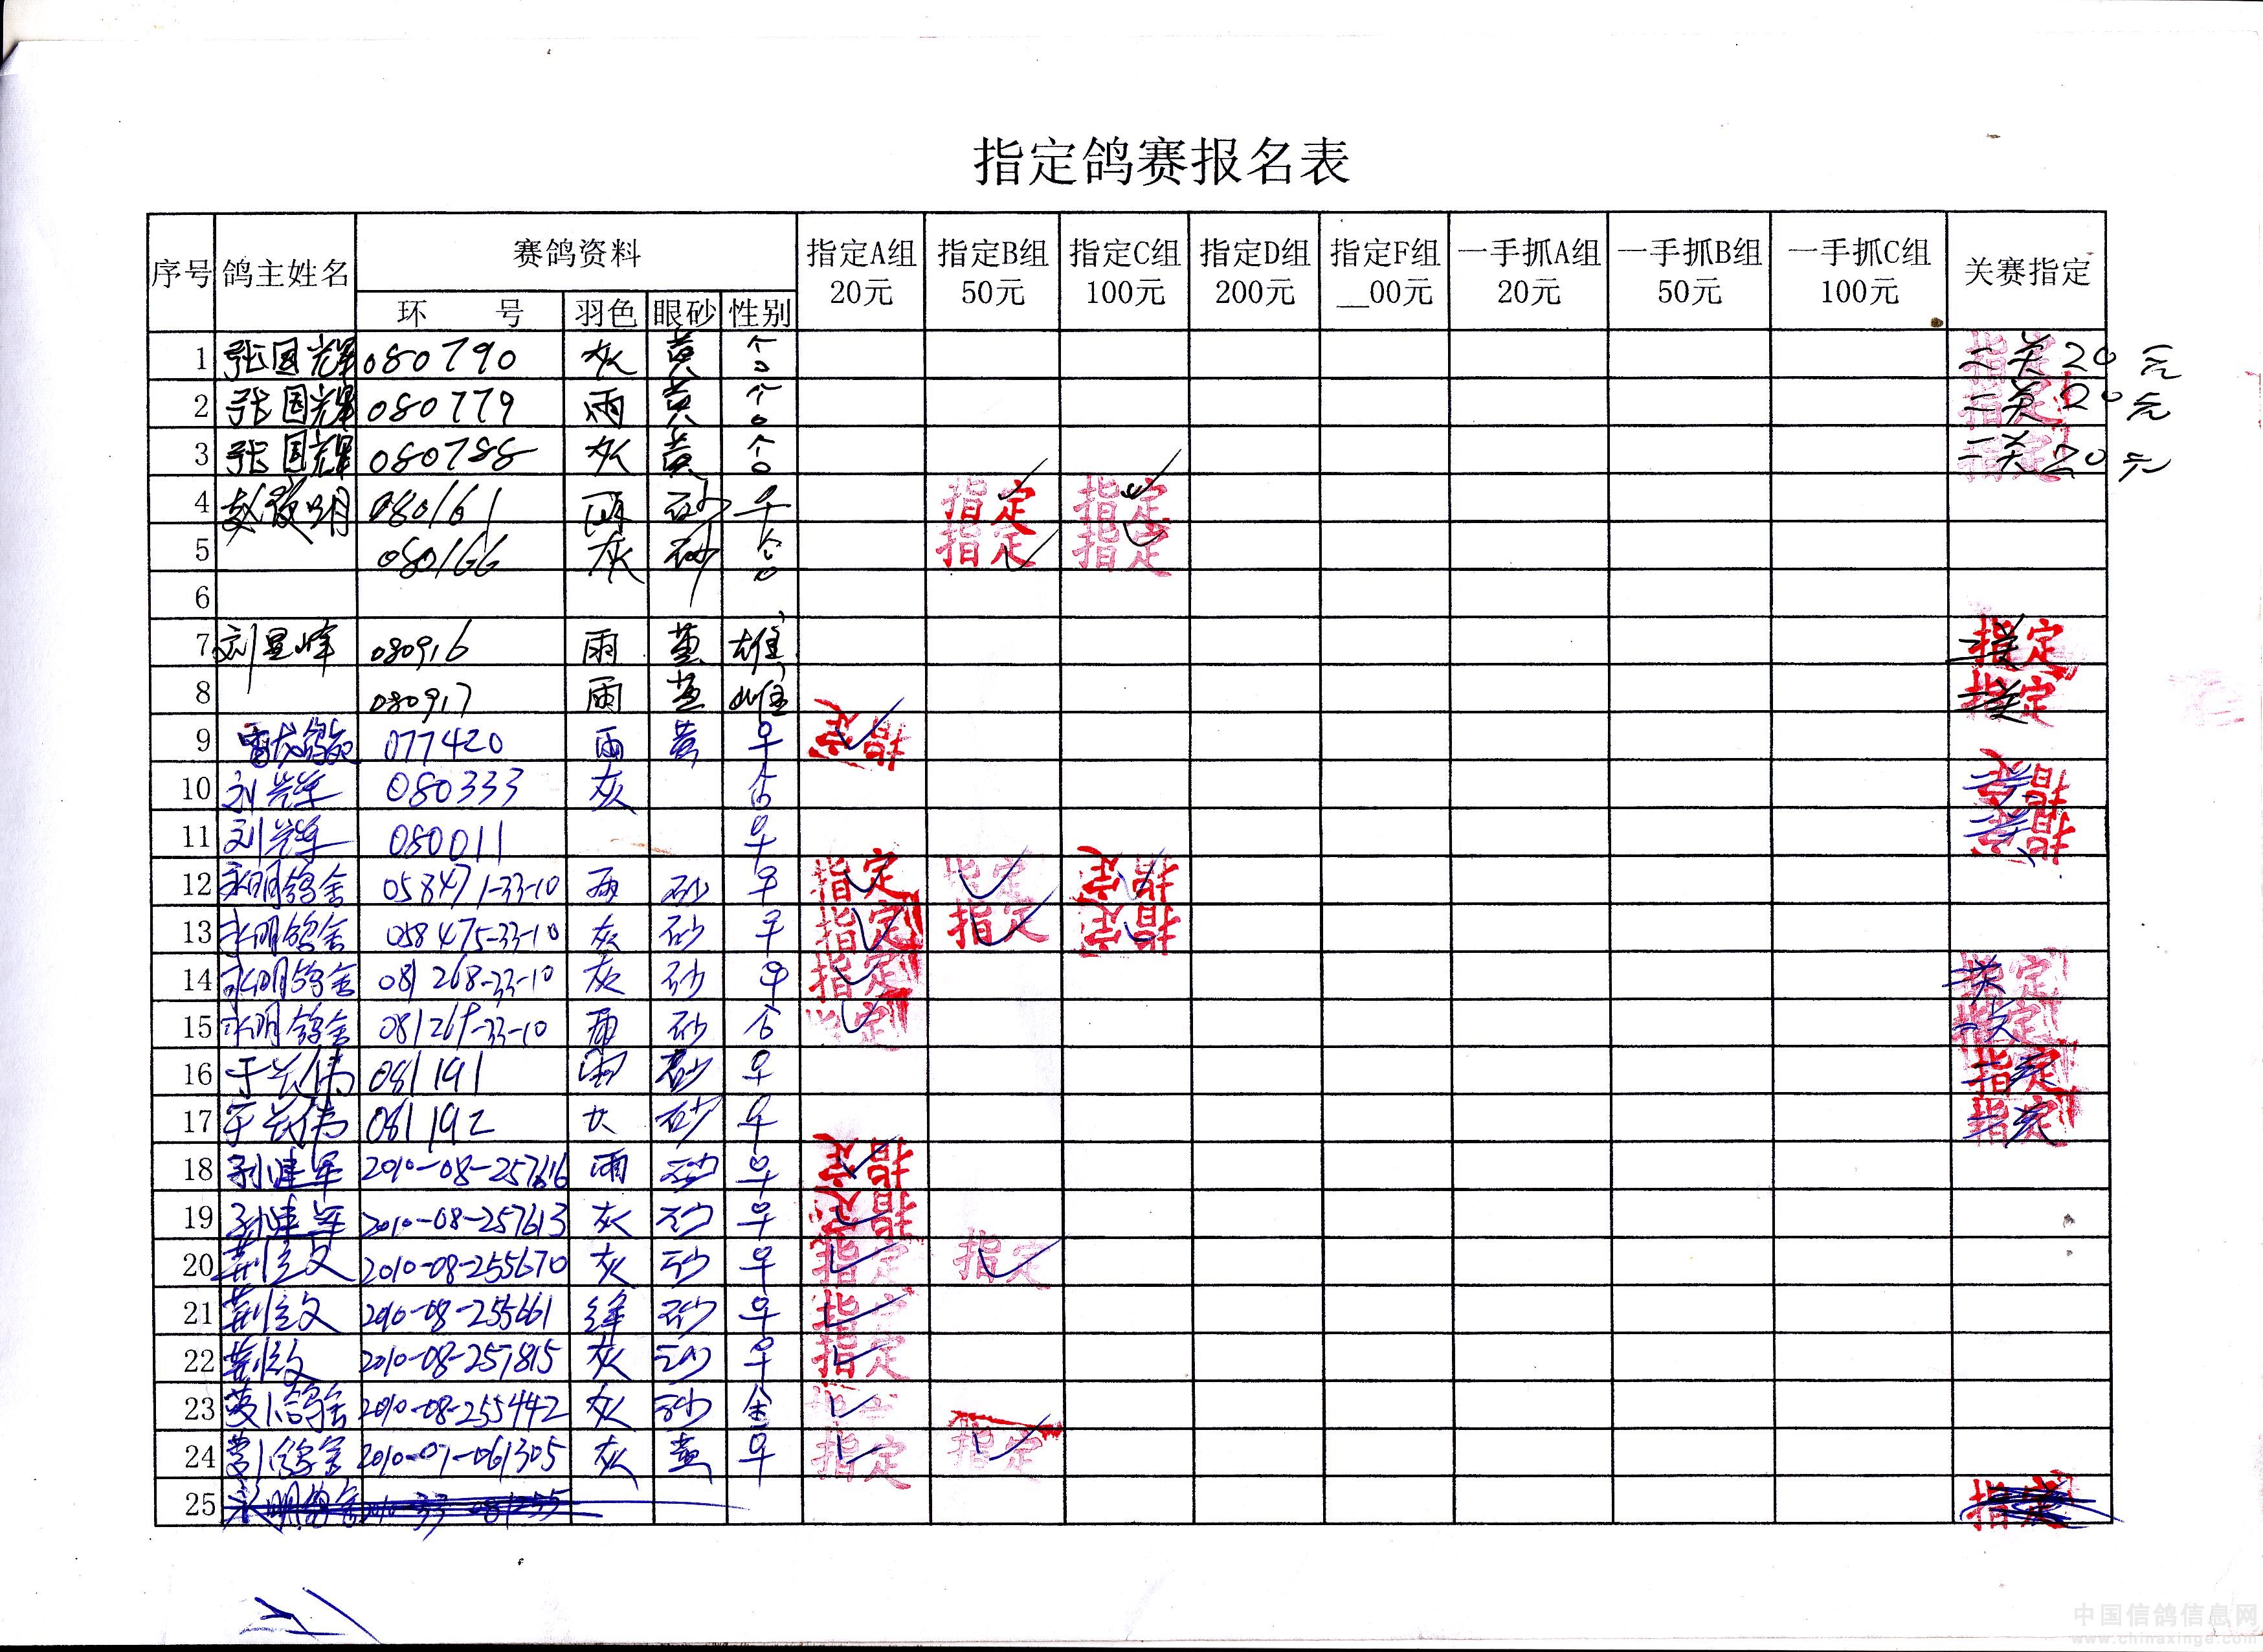 指定鸽赛报名表
序号 鸽主姓名 赛鸽资料 指定A组 20元 指定B组 50元 指定C组 100元 指定D组 200元 指定F组 __00元 一手抓A组 20元 一手抓B组 50元 一手抓C组 100元 关赛指定
环 号 羽色 眼砂 性别
1 张国辉 080790 灰 黄 指定 二关20元
2 张国辉 080779 雨 黄 指定 二关20元
3 张国辉 080788 灰 黄 指定 二关20元
4 080161 砂 指定 指定
5 080166 灰 砂 指定 指定
6
7 080916 雨 黄 雄 指定
8 080917 雨 黄 雄 指定
9 077420 雨 黄 ♀ 指定
10 080333 灰 指定
11 080011 ♀ 指定
12 永明鸽舍 058471-33-10 雨 砂 ♀ 指定 指定 指定
13 永明鸽舍 058475-33-10 灰 砂 ♀ 指定 指定 指定
14 永明鸽舍 081268-33-10 灰 砂 ♀ 指定 指定
15 永明鸽舍 081269-33-10 雨 砂 指定 指定
16 于长伟 081191 雨 砂 ♀ 指定
17 于长伟 081192 砂 ♀ 指定
18 孙建军 2010-08-257616 雨 砂 ♀ 指定
19 孙建军 2010-08-257613 灰 砂 ♀ 指定
20 荆立文 2010-08-255670 灰 砂 ♀ 指定 指定
21 荆立文 2010-08-255661 绛 砂 ♀ 指定
22 荆立文 2010-08-257815 灰 砂 ♀ 指定
23 2010-08-255442 灰 砂 指定
24 2010-07-061305 灰 黄 ♀ 指定 指定
25 永明鸽舍 2010-33 081255 指定
中国信鸽信息网
www.chinaxinge.com